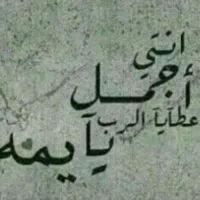 انتي
أجمل
عطايآ الرب
يآ يمه